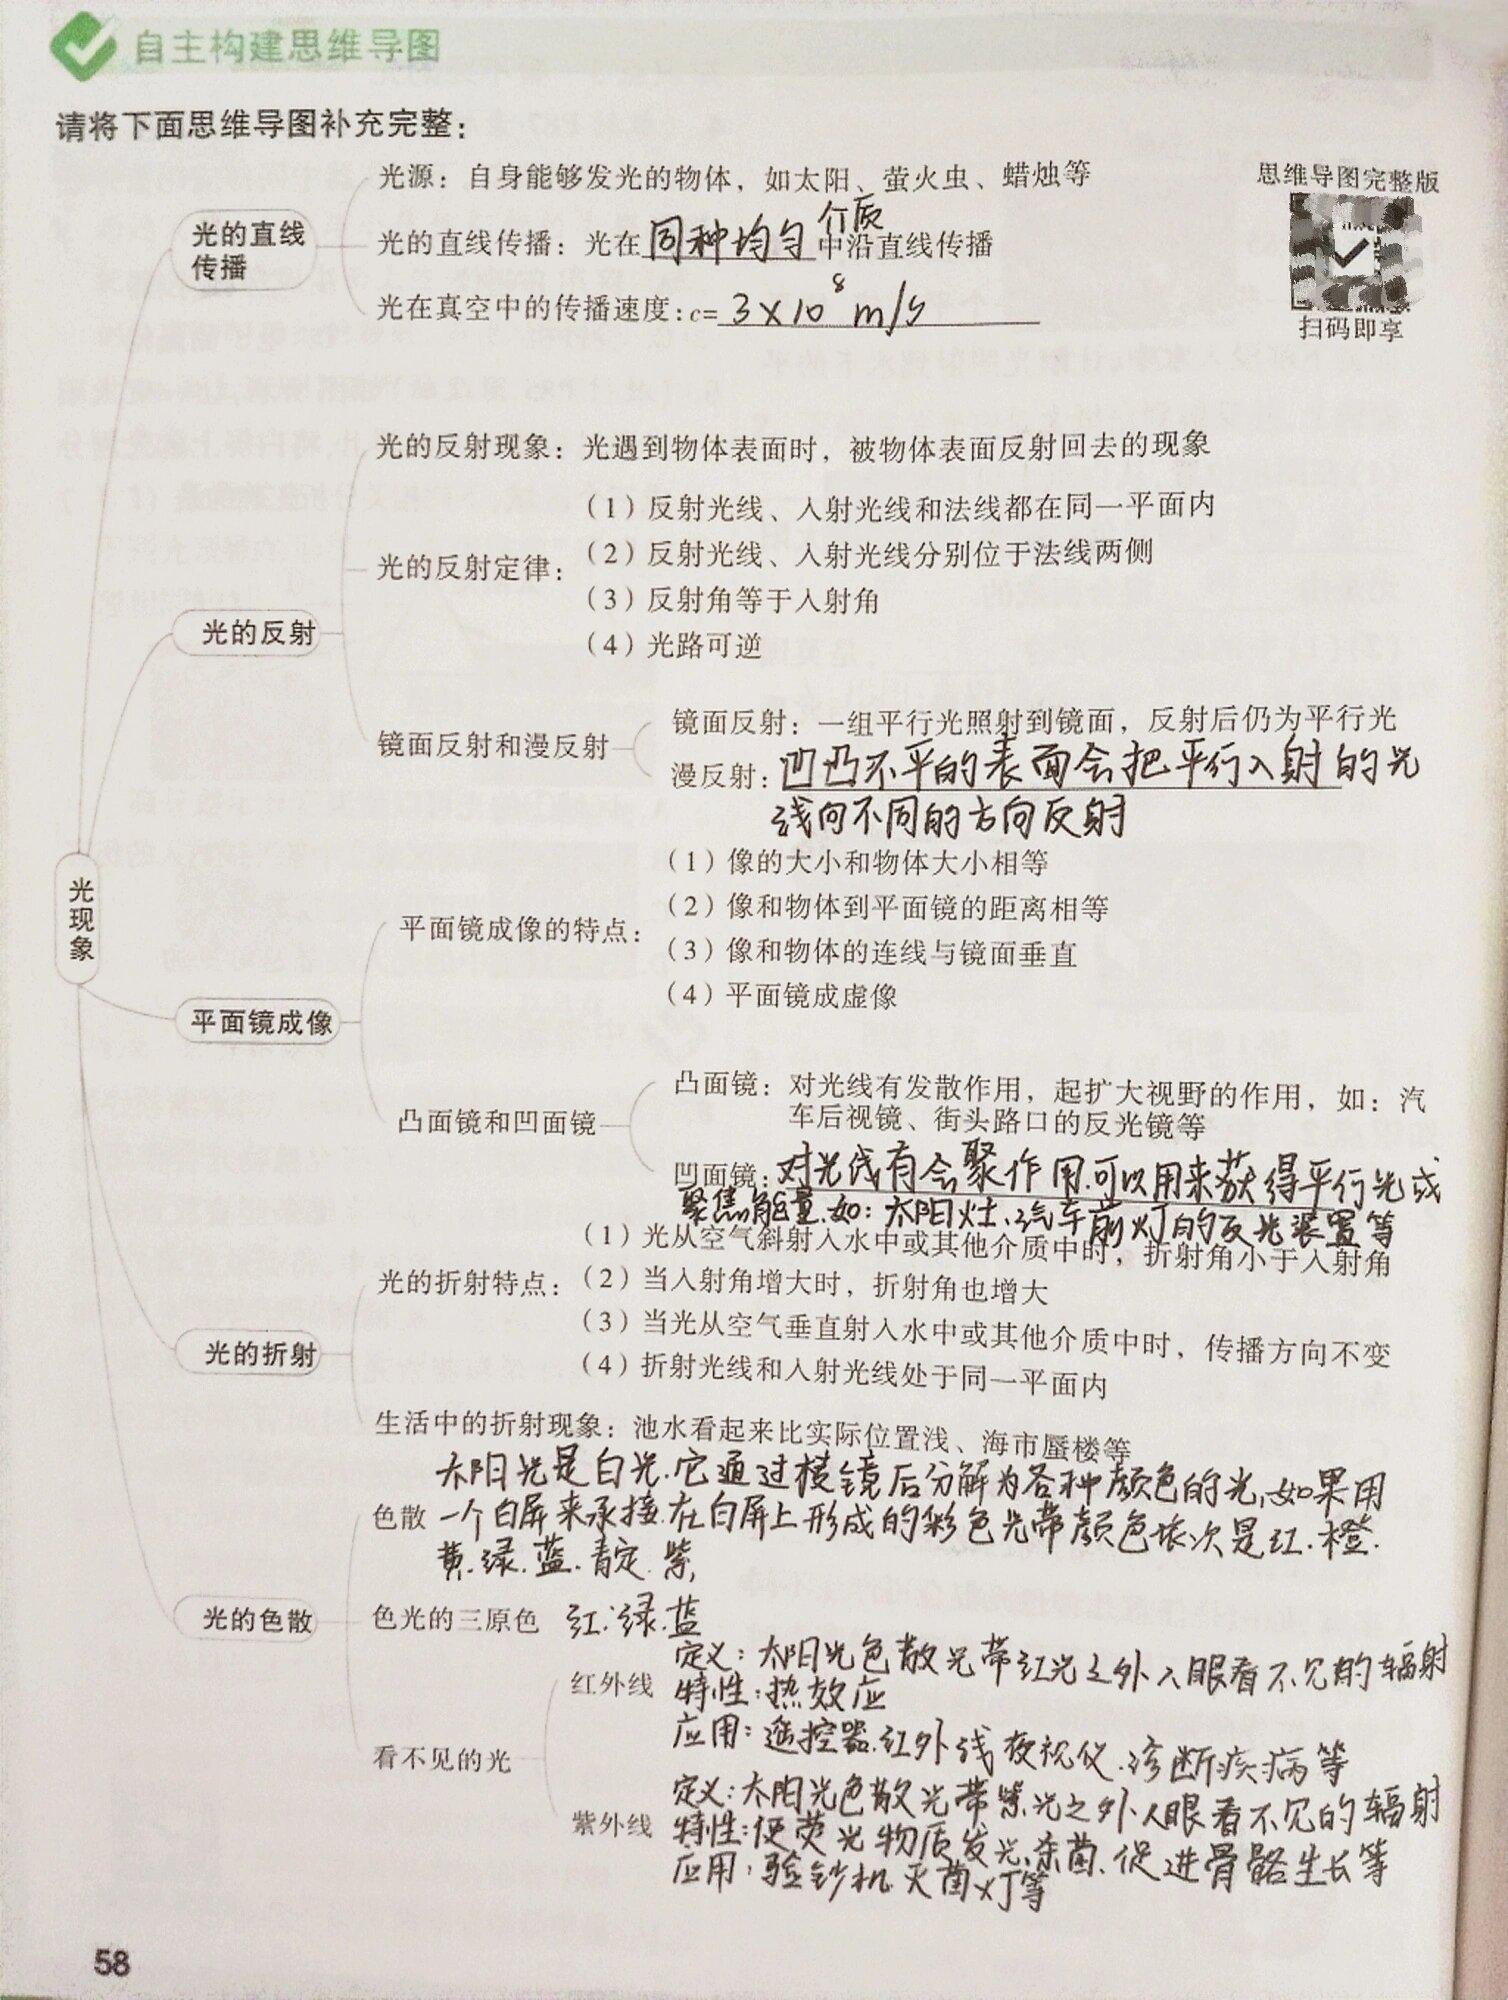 自主构建思维导图
请将下面思维导图补充完整：
思维导图完整版
扫码即享
光现象
光的直线
传播
光源：自身能够发光的物体，如太阳、萤火虫、蜡烛等
光的直线传播：光在同种均匀介质中沿直线传播
光在真空中的传播速度：c=3×10⁸m/s
光的反射
光的反射现象：光遇到物体表面时，被物体表面反射回去的现象
光的反射定律：
（1）反射光线、入射光线和法线都在同一平面内
（2）反射光线、入射光线分别位于法线两侧
（3）反射角等于入射角
（4）光路可逆
镜面反射和漫反射
镜面反射：一组平行光照射到镜面，反射后仍为平行光
漫反射：凹凸不平的表面会把平行入射的光
线向不同的方向反射
平面镜成像
平面镜成像的特点：
（1）像的大小和物体大小相等
（2）像和物体到平面镜的距离相等
（3）像和物体的连线与镜面垂直
（4）平面镜成虚像
凸面镜和凹面镜
凸面镜：对光线有发散作用，起扩大视野的作用，如：汽
车后视镜、街头路口的反光镜等
凹面镜：对光线有会聚作用.可以用来获得平行光或
聚焦能量.如：太阳灶、汽车前灯的反光装置等
光的折射
光的折射特点：
（1）光从空气斜射入水中或其他介质中时，折射角小于入射角
（2）当入射角增大时，折射角也增大
（3）当光从空气垂直射入水中或其他介质中时，传播方向不变
（4）折射光线和入射光线处于同一平面内
生活中的折射现象：池水看起来比实际位置浅、海市蜃楼等
光的色散
色散
太阳光是白光.它通过棱镜后分解为各种颜色的光,如果用
一个白屏来承接.在白屏上形成的彩色光带颜色依次是红.橙.
黄.绿.蓝.靛.紫.
色光的三原色 红.绿.蓝
看不见的光
红外线
定义：太阳光色散光带红光之外人眼看不见的辐射
特性：热效应
应用：遥控器.红外线夜视仪.诊断疾病等
紫外线
定义：太阳光色散光带紫光之外人眼看不见的辐射
特性：使荧光物质发光、杀菌、促进骨骼生长等
应用：验钞机.灭菌灯等
58